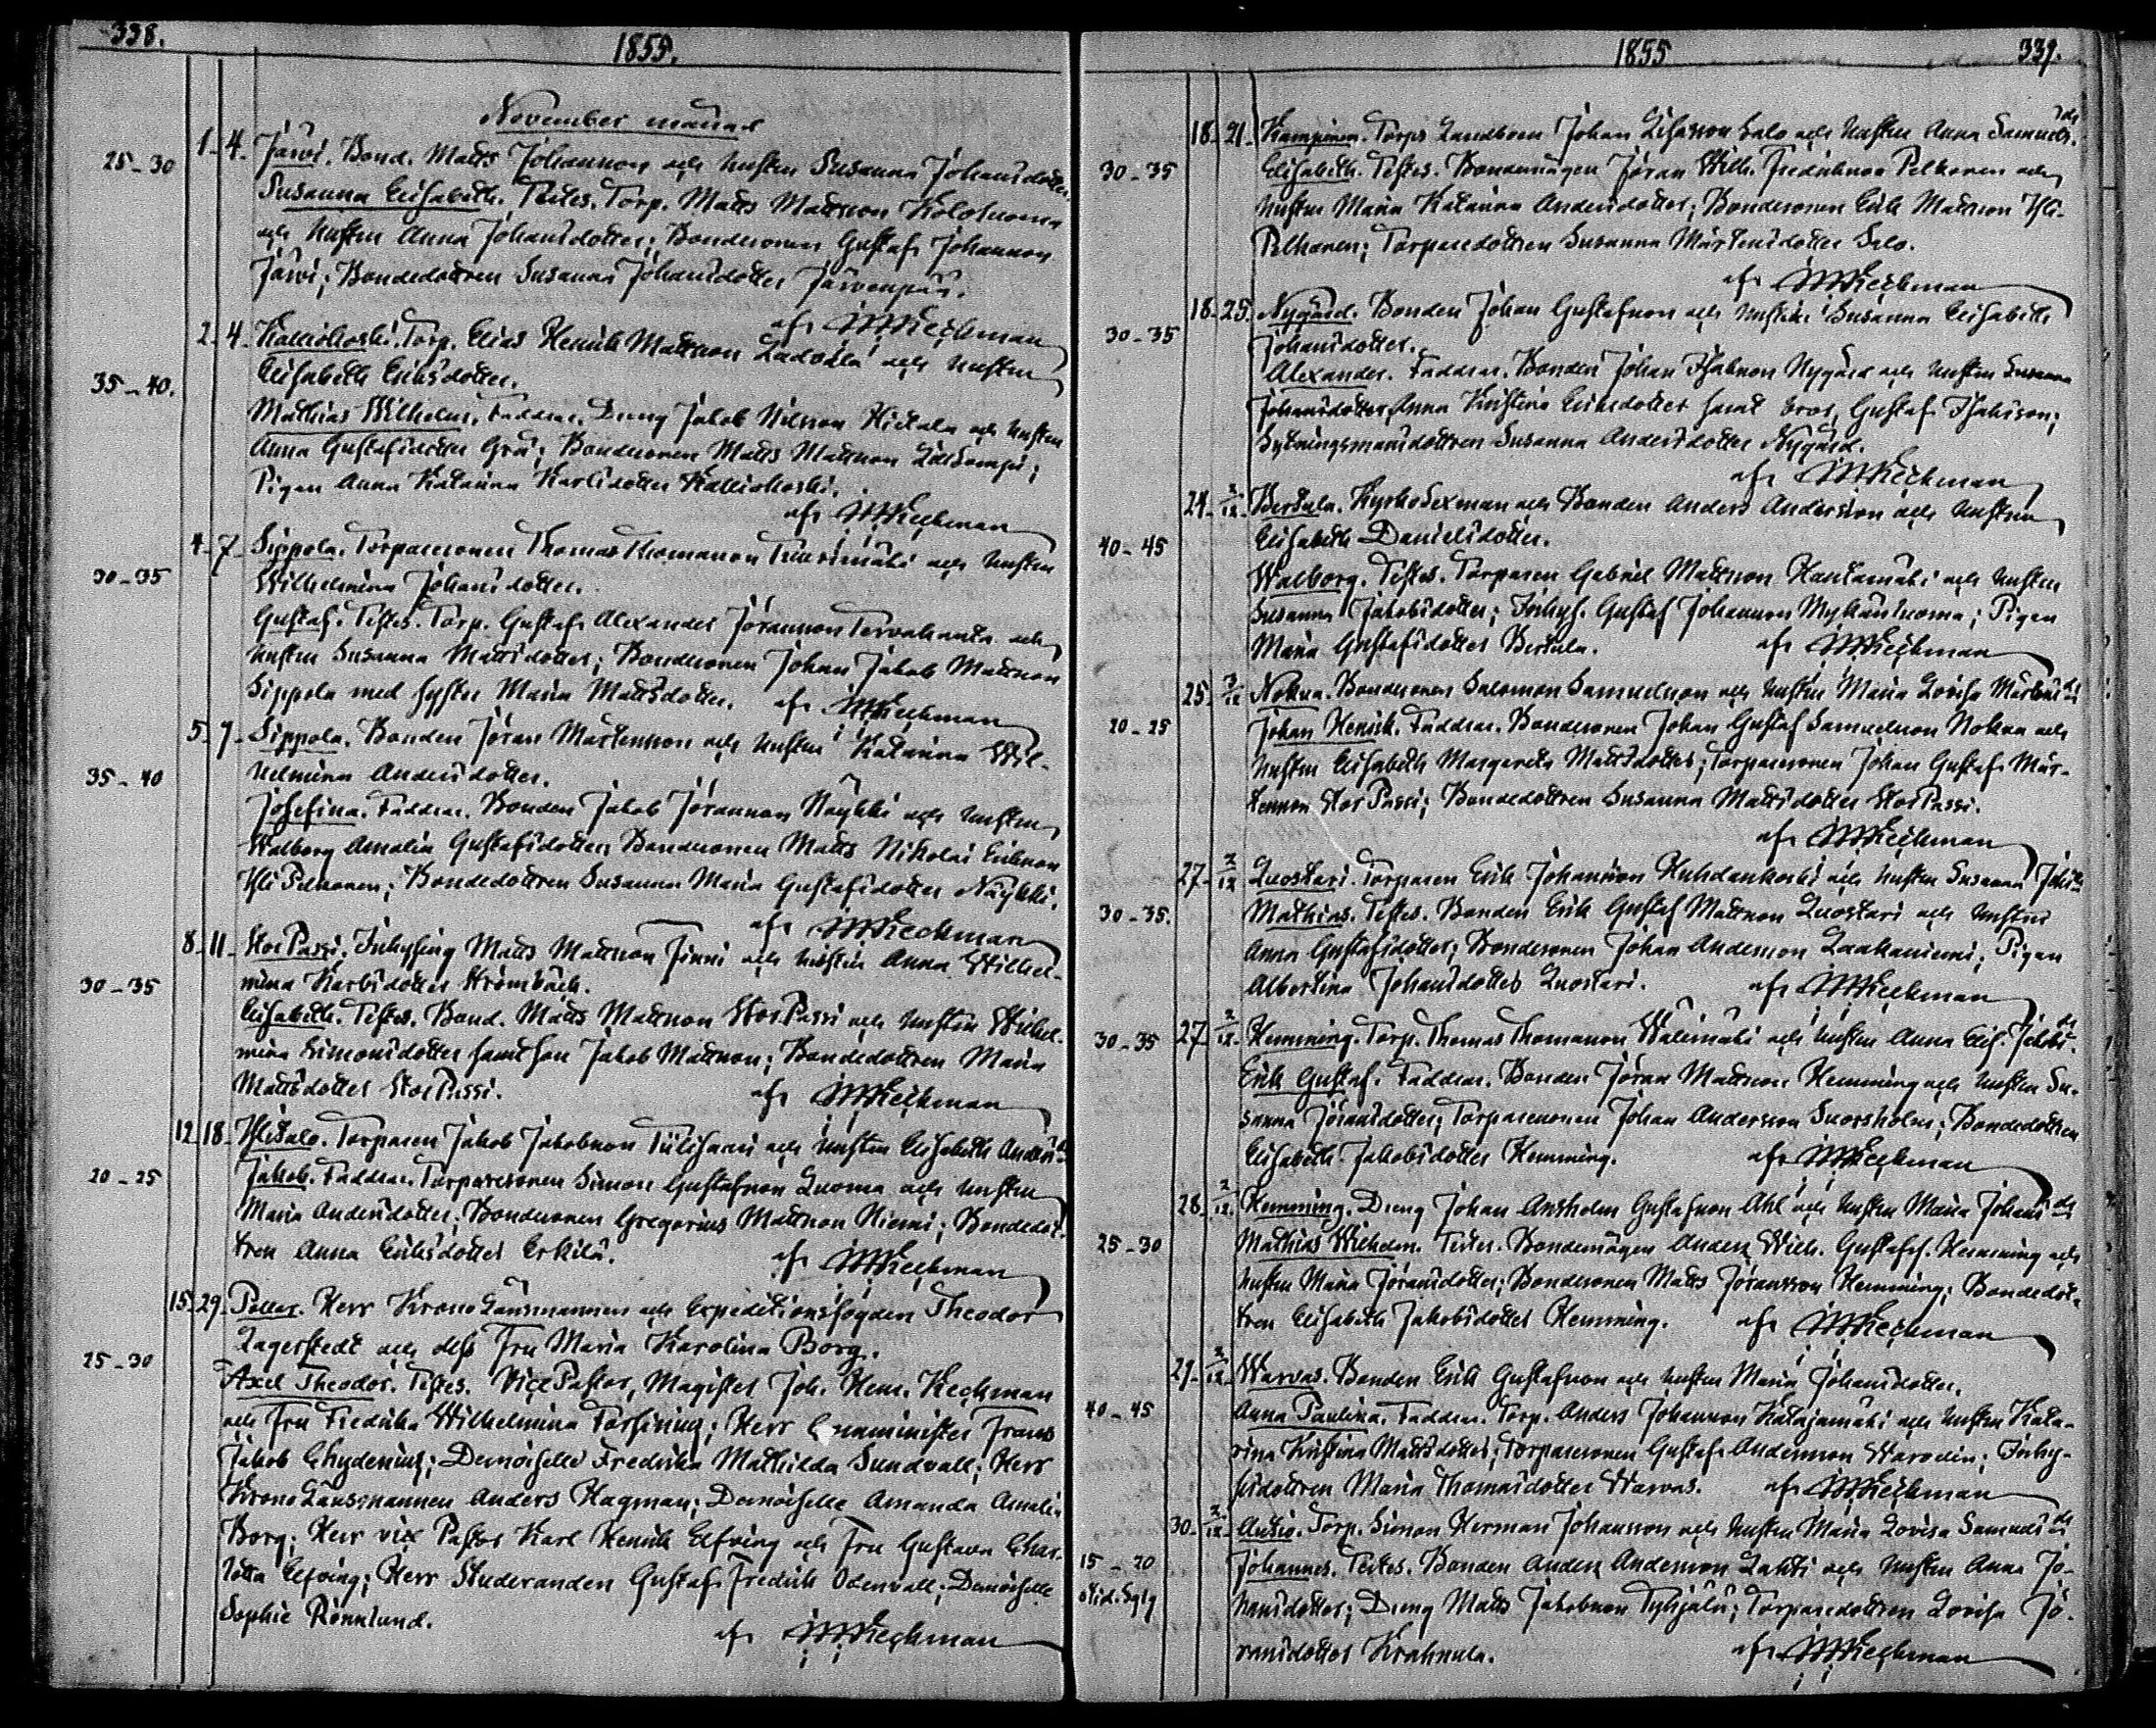 338.
1855.
November månad
25-30
1- 4- Järvi. Bond. Matts Johansson och hustru Susanna Johansdotter.
Susanna Elisabeth. Testes. Torp. Matts Mattsson Kololuoma
och hustru Anna Johansdotter; Bondesonen Gustaf Johansson
Järvi; Bondedottren Susanna Johansdotter Järvenpää.
af JHKeckman
2- 4- Kalliokoski. Torp. Elias Henrik Mattsson Ladvala och hustru
35-40.
Elisabeth Eriksdotter.
Mathias Wilhelm. Faddrar. Dreng Jakob Nilsson Hietala och hustru
Anna Gustafsdotter Grå; Bondesonen Matts Mattsson
Pigan Anna Katarina Karlsdotter Kalliokoski.
af JHKeckman
4- 7- Sippola. Torparesonen Thomas Thomasson Tuurimäki och hustru
30-35
Wilhelmina Johansdotter.
Gustaf. Testes. Torp. Gustaf Alexander Jöransson Tervahauta och
hustru Susanna Mattsdotter; Bondesonen Johan Jakob Mattsson
Sippola med syster Maria Mattsdotter. af JHKeckman
5- 7- Sippola. Bonden Jöran Mårtensson och hustru Katarina Wil-
35-40
helmina Andersdotter.
Josefina. Faddrar. Bonden Jakob Jöransson Näykki och hustru
Walborg Amalia Gustafsdotter; Bondesonen Matts Nikolai Eriksson
Yli Pelkonen; Bondedottren Susanna Maria Gustafsdotter Näykki.
af JHKeckman
8- 11- StorPassi. Inhysing Matts Mattsson Finni och hustru Anna Wilhel-
30-35
mina Karlsdotter Strömbäck.
Elisabeth. Testes. Bond. Matts Mattsson StorPassi och hustru Wilhel-
mina Simonsdotter samt son Jakob Mattsson; Bondedottren Maria
Mattsdotter StorPassi. af JHKeckman
12. 18- Ylitalo. Torparen Jakob Jakobsson Tiilihari och hustru Elisabeth Andersd:r
20-25
Jakob. Faddrar. Torparesonen Simon Gustafsson Luoma och hustru
Maria Andersdotter; Bondesonen Gregorius Mattsson Niemi; Bondedot-
tren Anna Eriksdotter Erkilä. af JHKeckman
15. 29. Pellar. Herr Krono Länsmannen och Expeditionsfogden Theodor
Lagerstedt och dess Fru Maria Karolina Borg.
25-30
Axel Theodor. Testes. Vice Pastor, Magister Joh. Henr. Keckman
och Fru Fredrika Wilhelmina Forssving; Herr Comminister Frans
Jakob Chydenius; Demoiselle Fredrika Mathilda Sundvall; Herr
Krono Länsmannen Anders Hagman; Demoiselle Amanda Amalia
Borg; Herr vice Pastor Karl Henrik Elfving och Fru Gustava Char-
lotta Elfving; Herr Studeranden Gustaf Fredrik Odenvall; Demoiselle
Sophie Rönnlund.
af JHKeckman
1855
339.
18- 21- Kampinen. Torps Landbon Johan Eliasson Salo och hustru Anna Samuels-
dr
30-35
Elisabeth. Testes. Bondemågen Jöran Wilh. Fredriksson Pelkonen och
hustru Maria Katarina Andersdotter; Bondesonen Erik Mattsson Yli-
Pelkonen; Torparedottren Susanna Mårtensdotter Salo.
af JHKeckman
18- 25. Nygård. Bonden Johan Gustafsson och hustru Susanna Elisabeth
30-35
Johansdotter.
Alexander. Faddrar. Bonden Johan Isaksson Nygård och hustru Susanna
Johansdotter, Anna Kristina Eriksdotter samt bror Gustaf Isaksson;
Sytningsmansdottren Susanna Andersdotter Nygård.
af JHKeckman
24- 2/12- Bertula. Kyrkosexman och Bonden Anders Andersson och hustru
40-45
Elisabeth Danielsdotter.
Walborg. Testes. Torparen Gabriel Mattsson Hautamäki och hustru
Susanna Jakobsdotter; Inhys. Gustaf Johansson Mykänluoma; Pigan
Maria Gustafsdotter Bertula. af JHKeckman
25- 2/12 Nokua. Bondesonen Salomon Samuelsson och hustru Maria Lovisa Mårtensd:r
20-25
Johan Henrik. Faddrar. Bondesonen Johan Gustaf Samuelsson Nokua och
hustru Elisabeth Margareta Mattsdotter; Torparesonen Johan Gustaf Mår-
tensson StorPassi; Bondedottren Susanna Mattsdotter StorPassi.
af JHKeckman
27- 2/12 Luostari. Torparen Erik Johansson Huhdankoski och hustru Susanna Johd:r
30-35.
Mathias. Testes. Bonden Erik Gustaf Mattsson Luostari och hustru
Anna Gustafsdotter; Bondesonen Johan Andersson Laakaniemi; Pigan
Albertina Johansdotter Luostari. af JHKeckman
30-35 27- 2/12- Hemming. Torp. Thomas Thomasson Wälimäki och hustru Anna Elis. Jakobsdr.
Erik Gustaf. Faddrar. Bonden Jöran Mattsson Hemming och hustru Su-
sanna Jöransdotter; Torparesonen Johan Andersson Snorsholm; Bondedottren
Elisabeth Jakobsdotter Hemming. af JHKeckman
28- 2/12. Hemming. Dreng Johan Anshelm Gustafsson Ahl och hustru Maria Johansd:r
25-30
Mathias Wilhelm. Testes. Bondemågen Anders Wilh. Gustafss. Hemming och
hustru Maria Jöransdotter; Bondesonen Matts Jöransson Hemming; Bondedot-
tren Elisabeth Jakobsdotter Hemming. af JHKeckman
29- 2/12- Warvas. Bonden Erik Gustafsson och hustru Maria Johansdotter.
40-45
Anna Paulina. Faddrar. Torp. Anders Johansson Katajamäki och hustru Kata-
rina Kristina Mattsdotter; Torparesonen Gustaf Andersson Warvelin; Inhy-
sidottren Maria Thomasdotter Warvas. af JHKeckman
30- 2/12- Autio. Torp. Simon Herman Johansson och hustru Maria Lovisa Samuelsd:r
15-20
Johannes. Testes. Bonden Anders Andersson Lahti och hustru Anna Jo-
hansdotter; Dreng Matts Jakobsson Tyhjälä; Torparedottren Lovisa Jö-
ransdotter Krahnula. af JHKeckman